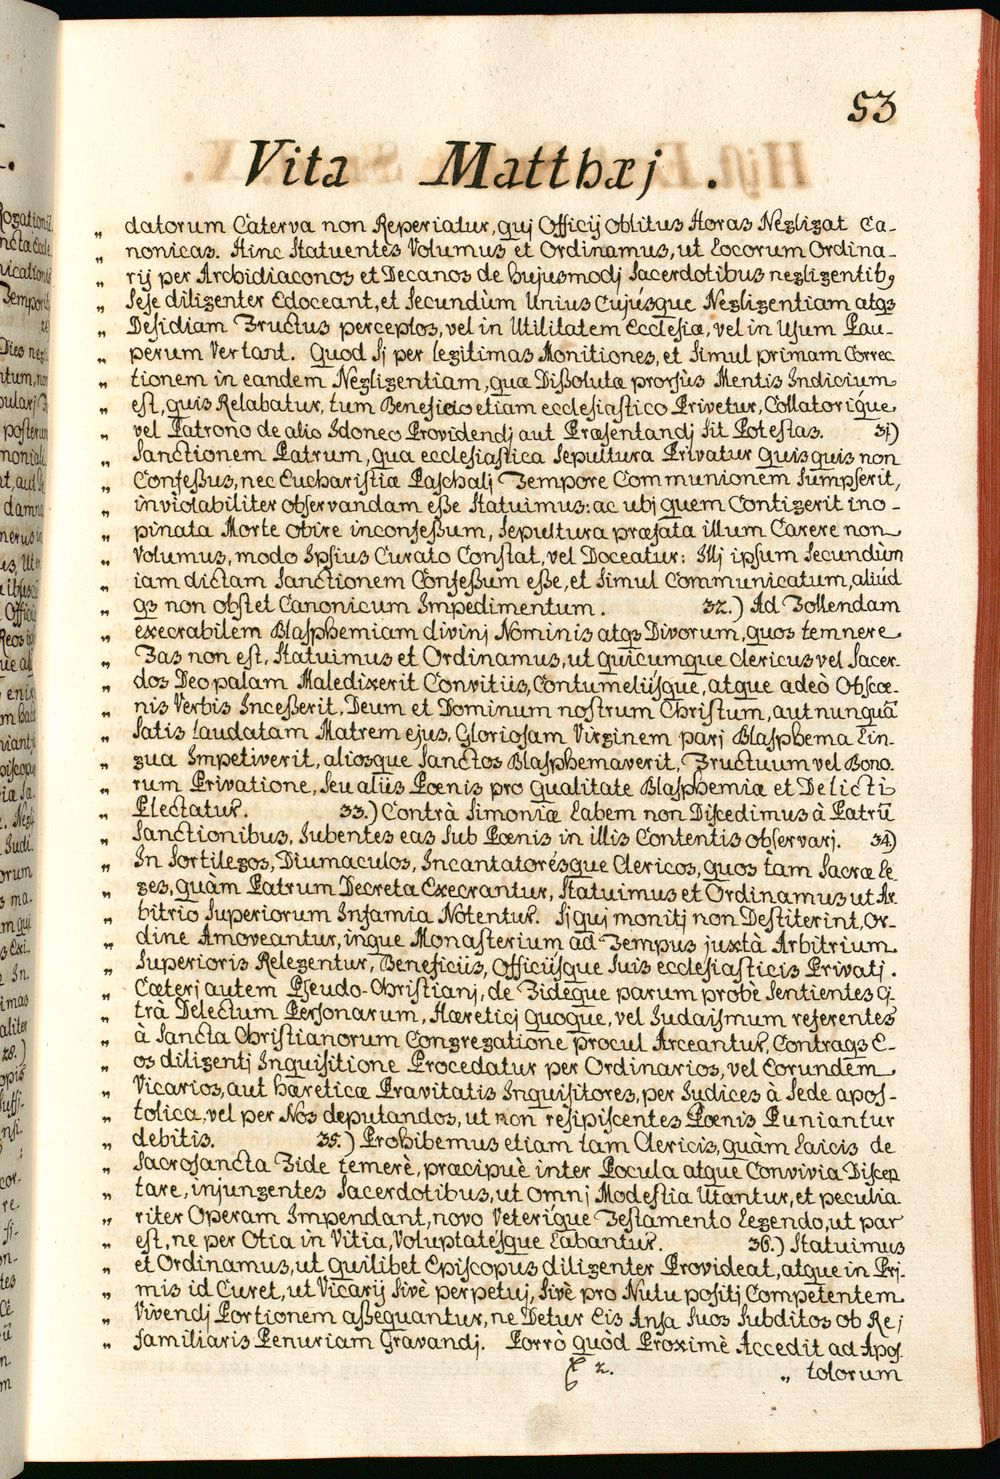 53
Vita Matthæj.
„ datorum Caterva non Reperiatur, quj Officij oblitus Horas Negligat Ca-
„ nonicas. Hinc Statuentes Volumus et Ordinamus, ut Locorum Ordina-
„ rij per Archidiaconos et Decanos de hujusmodj Sacerdotibus negligentib9
„ Sese diligenter Edoceant, et Secundùm Unius Cujúsque Negligentiam atqs
„ Desidiam Fructus perceptos, vel in Utilitatem Ecclesiæ, vel in Usum Pau-
„ perum Vertant. Quod Sj per legitimas Monitiones, et Simul primam Correc
„ tionem in eandem Negligentiam, quæ Dißolutæ prorsùs Mentis Indicium
„ est, quis Relabatur, tum Beneficio etiam ecclesiastico Privetur, Collatoríque
„ vel Patrono de alio Idoneo Providendj aut Præsentandj Sit Potestas. 31)
„ Sanctionem Patrum, qua ecclesiastica Sepultura Privatur quisquis non
„ Confeßus, nec Eucharistiæ Paschalj Tempore Communionem Sumpserit,
„ inviolabiliter observandam eße Statuimus: ac ubj quem Contigerit ino-
„ pinata Morte obire inconfeßum, Sepultura præfata illum Carere non
„ Volumus, modo Ipsius Curato Constat, vel Doceatur: Illj ipsum Secundùm
„ iam dictam Sanctionem Confeßum eße, et Simul Communicatum, aliúd
„ qs non obstet Canonicum Impedimentum. 32.) Ad Tollendam
„ execrabilem Blasphemiam divinj Nominis atqs Divorum, quos temnere
„ Fas non est, Statuimus et Ordinamus, ut quicumque clericus vel Sacer-
„ dos Deo palam Maledixerit Convitiis, Contumeliisque, atque adeò Obscœ-
„ nis Verbis Inceßerit, Deum et Dominum nostrum Christum, aut nunquā
„ Satis laudatam Matrem ejus, Gloriosam Virginem parj Blasphema Lin-
„ gua Impetiverit, aliosque Sanctos Blasphemaverit, Fructuum vel Bono-
„ rum Privatione, Seu aliis Pœnis pro qualitate Blasphemiæ et Delicti
„ Plectatur. 33.) Contrà Simoniæ Labem non Discedimus à Patrū
„ Sanctionibus, Iubentes eas Sub Pœnis in illis Contentis observarj. 34)
„ In Sortilegos, Diumaculos, Incantatorésque Clericos, quos tam Sacræ le-
„ ges, quàm Patrum Decreta Execrantur, Statuimus et Ordinamus ut Ar-
„ bitrio Superiorum Infamia Notentur. Sj quj monitj non Destiterint, Or-
„ dine Amoveantur, inque Monasterium ad Tempus juxtà Arbitrium
„ Superioris Relegentur, Beneficiis, Officiisque Suis ecclesiasticis Privatj.
„ Cæterj autem Pseudo-Christianj, de Fideque parum probè Sentientes Ci-
„ trà Delectum Personarum, Hæreticj quoque, vel Iudaismum referentes
„ à Sancta Christianorum Congregatione procul Arceantur, Contraqs E-
„ os diligentj Inquisitione Procedatur per Ordinarios, vel Eorundem
„ Vicarios, aut hæreticæ Pravitatis Inquisitores, per Iudices à Sede apos-
„ tolica, vel per Nos deputandos, ut non resipiscentes Pœnis Puniantur
„ debitis. 35.) Prohibemus etiam tam Clericis, quàm Laicis de
„ Sacrosancta Fide temerè, præcipuè inter Pocula atque Convivia Discep
„ tare, injungentes Sacerdotibus, ut omnj Modestia Utantur, et peculia-
„ riter Operam Impendant, novo Veteríque Testamento Legendo, ut par
„ est, ne per Otia in Vitia, Voluptatésque Labantur. 36.) Statuimus
„ et Ordinamus, ut quilibet Episcopus diligenter Provideat, atque in Prj-
„ mis id Curet, ut Vicarij Sivè perpetuj, Sivè pro Nutu positj Competentem
„ Vivendj Portionem aßequantur, ne Detur Eis Ansa Suos Subditos ob Rej
„ familiaris Penuriam Gravandj. Porrò quòd Proximè Accedit ad Apos-
2. „ tolorum